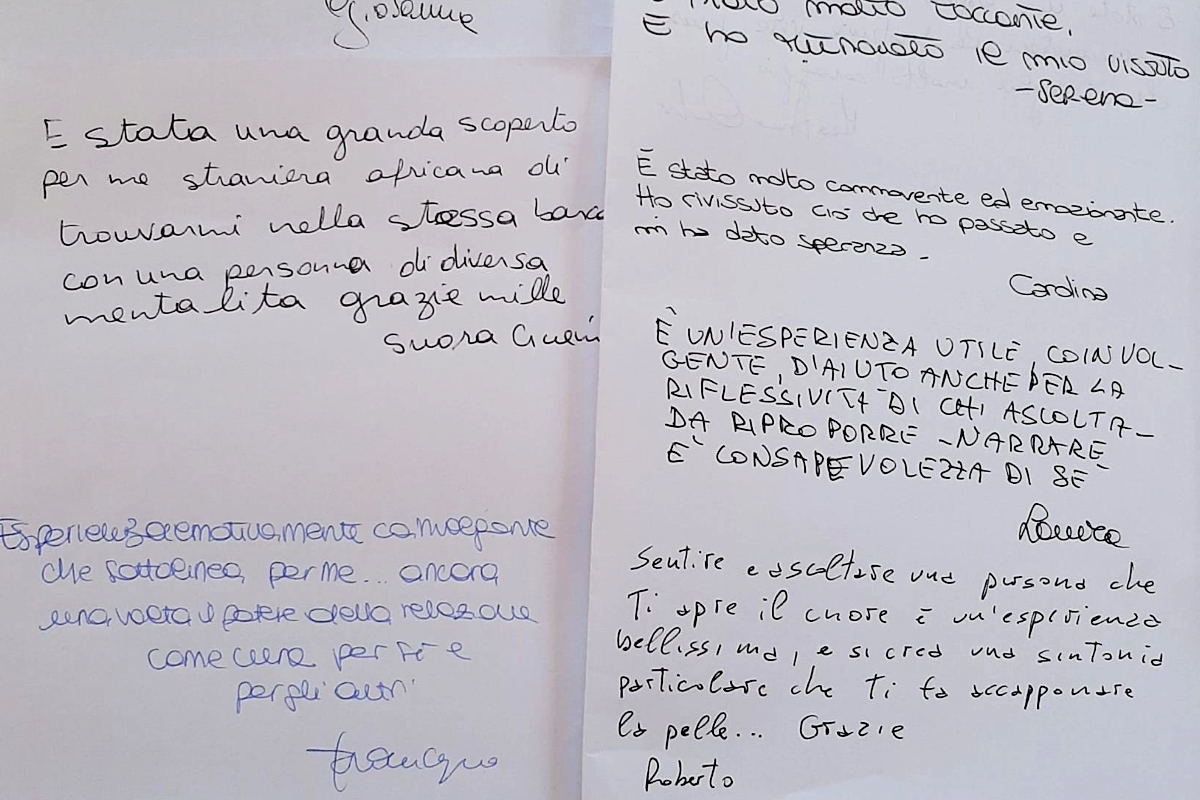 Giosanna
E stata una granda scoperto
per me straniera africana di
trouvarmi nella stessa barca
con una personna di diversa
mentalita grazie mille
suora
Esperienza emotivamente coinvolgente
che sottolinea, per me... ancora
una volta il potere della relazione
come cura per sé e
per gli altri
molto toccante.
E ho il mio vissuto
-Serena-
È stato molto commovente ed emozionante.
Ho rivissuto ciò che ho passato e
mi ha dato speranza.
È UN'ESPERIENZA UTILE, COINVOL-
GENTE, D'AIUTO ANCHE PER LA
RIFLESSIVITÀ DI CHI ASCOLTA-
DA RIPROPORRE - NARRARE
E' CONSAPEVOLEZZA DI SÉ
Laura
Sentire e ascoltare una persona che
Ti apre il cuore è un'esperienza
bellissima, e si crea una sintonia
particolare che Ti fa accapponare
la pelle... Grazie
Roberto